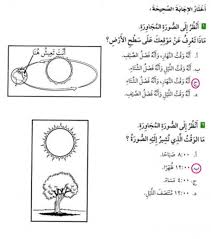 أختار الإجابة الصحيحة:
١ أنظر إلى الصورة المجاورة.
ماذا تعرف عن موقعك على سطح الأرض؟
أ. أنه وقت النهار، وأنه فصل الصيف.
ب. أنه وقت الليل وأنه فصل الصيف.
ج. أنه وقت النهار، وأنه فصل الشتاء.
د. أنه وقت الليل، وأنه فصل الشتاء.
أنت تعيش هنا
أنظر إلى الصورة المجاورة.
ما الوقت الذي تشير إليه الصورة؟
أ. ٨:٠٠ صباحًا.
ب. ١٢:٠٠ ظهرًا.
ج. ٤:٠٠ مساءً.
د. ١٢:٠٠ منتصف الليل.